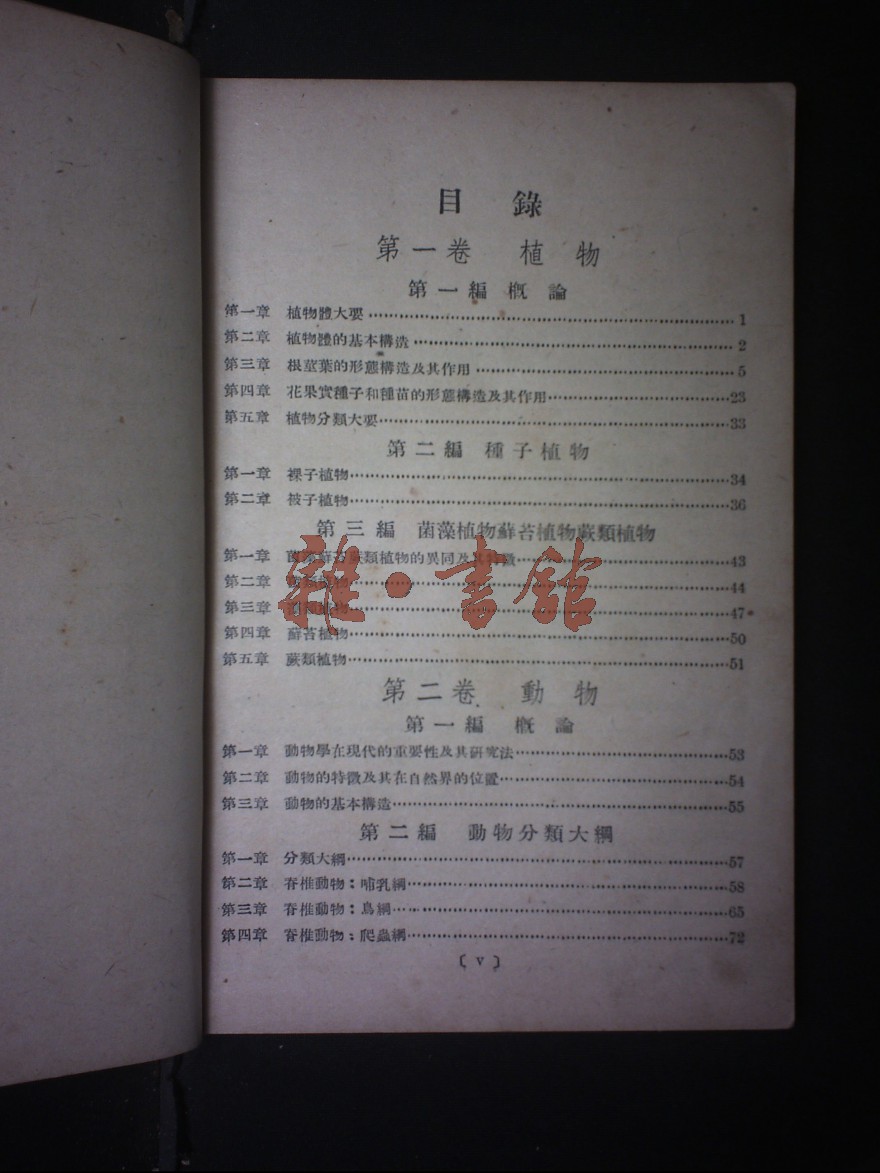 目錄
第一卷 植物
第一編 概論
第一章 植物體大要……1
第二章 植物體的基本構造……2
第三章 根莖葉的形態構造及其作用……5
第四章 花果實種子和種苗的形態構造及其作用……23
第五章 植物分類大要……33
第二編 種子植物
第一章 裸子植物……34
第二章 被子植物……36
第三編 菌藻植物蘚苔植物蕨類植物
第一章 菌藻蘚苔蕨類植物的異同及其特徵……43
第二章 類植物……44
第三章 植物……47
第四章 蘚苔植物……50
第五章 蕨類植物……51
雜·書館
第二卷 動物
第一編 概論
第一章 動物學在現代的重要性及其研究法……53
第二章 動物的特徵及其在自然界的位置……54
第三章 動物的基本構造……55
第二編 動物分類大綱
第一章 分類大綱……57
第二章 脊椎動物：哺乳綱……58
第三章 脊椎動物：鳥綱……65
第四章 脊椎動物：爬蟲綱……72
〔v〕